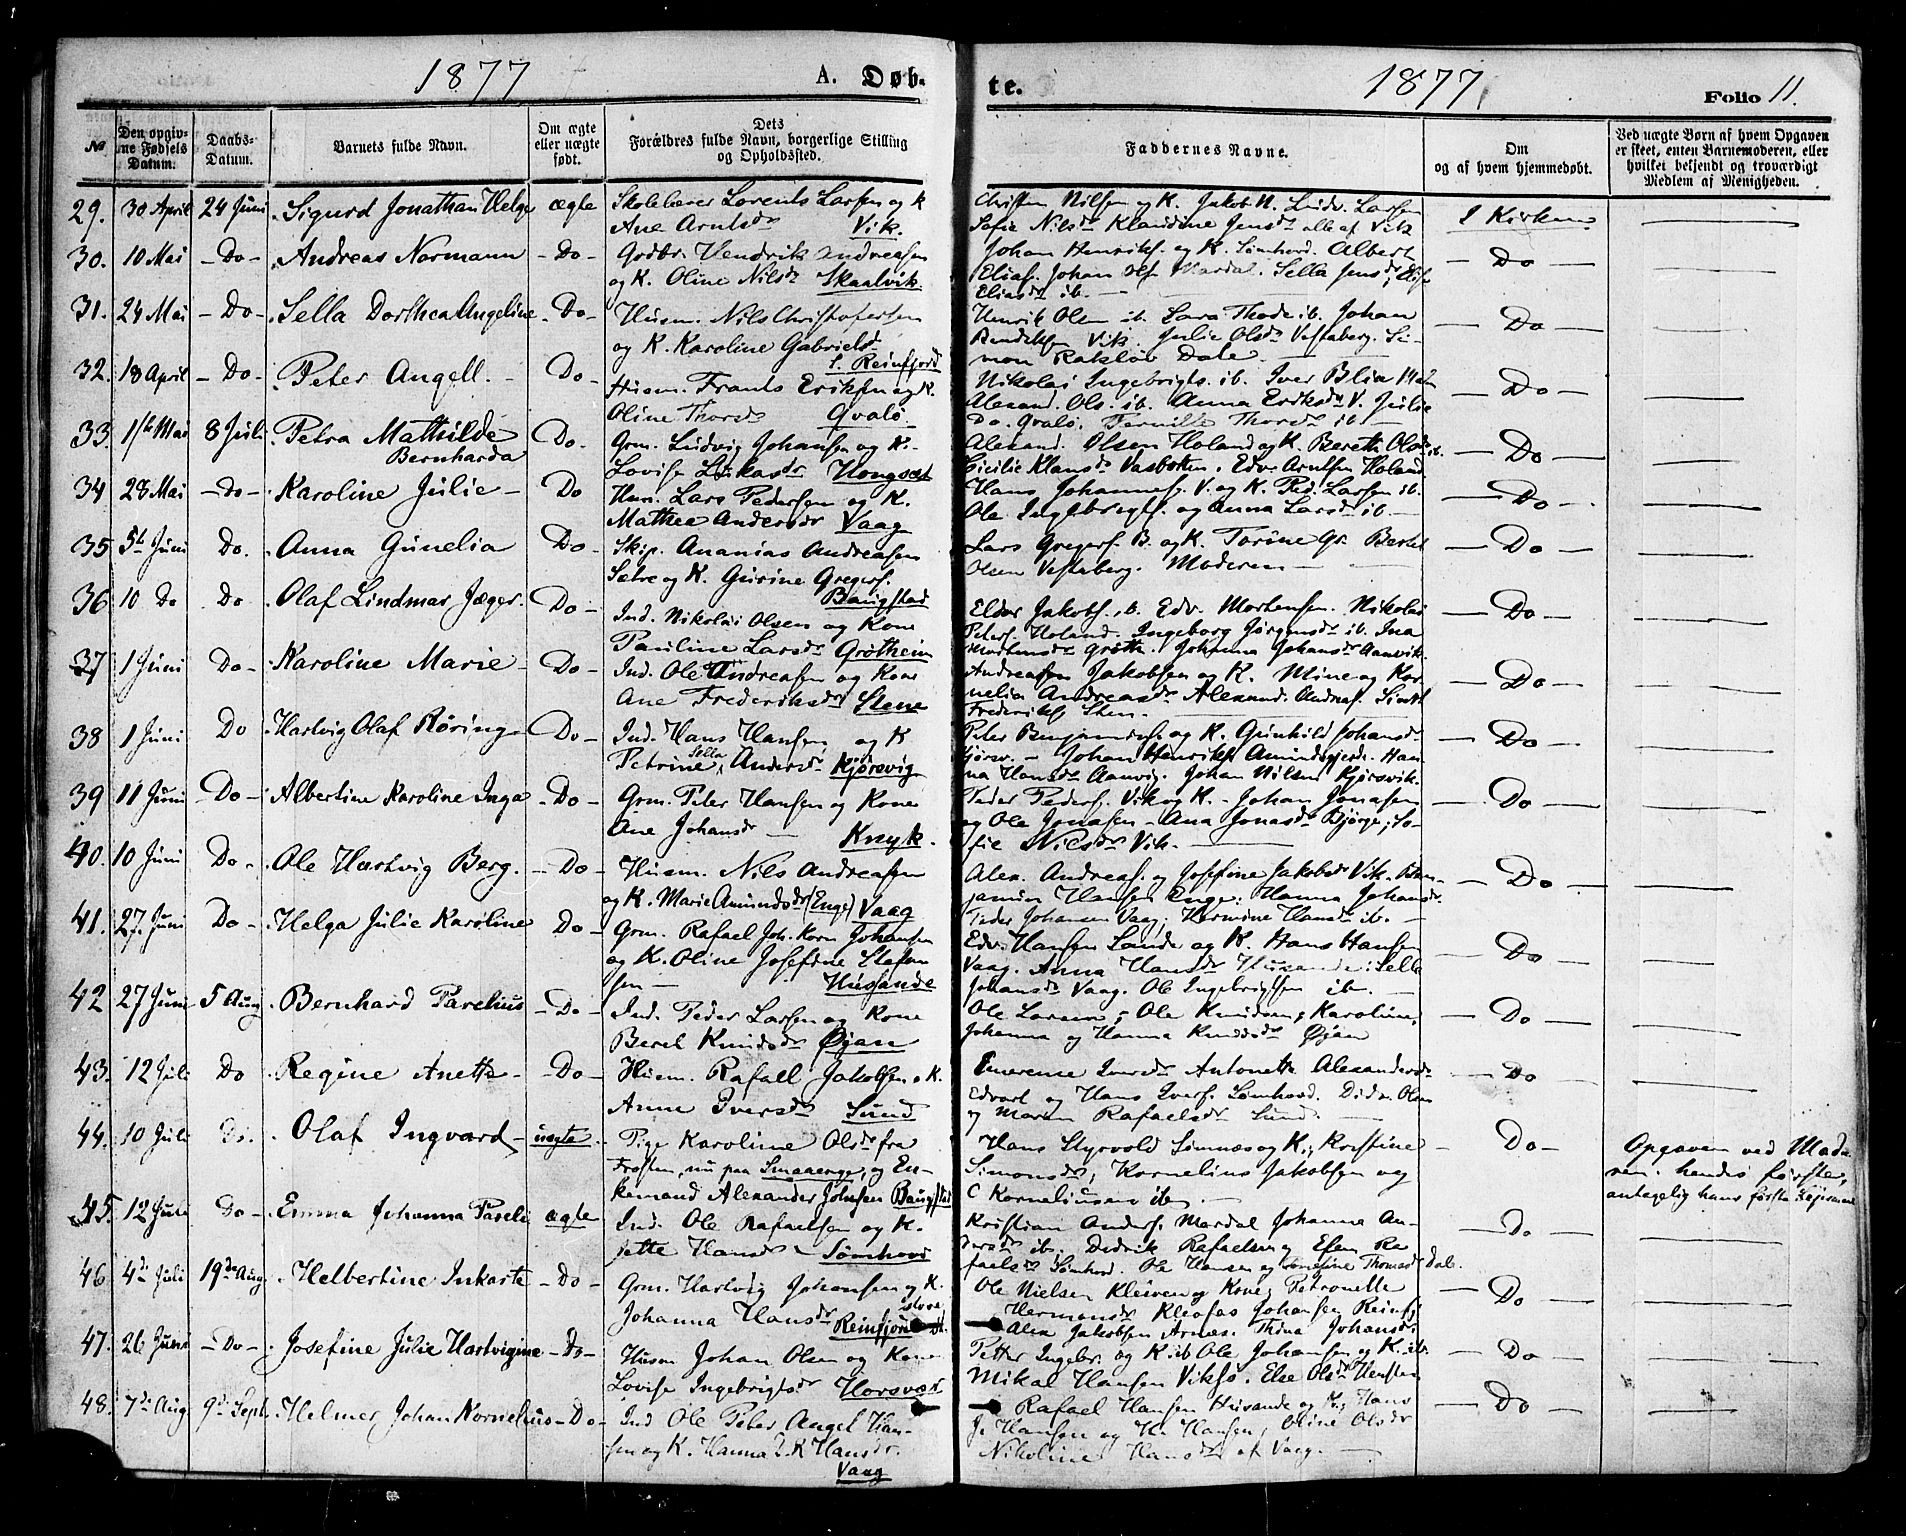 1877
A. Døb-
te.
1877
Folio 11.
№
Den opgiv-
ne Fødsels
Datum.
Daabs-
Datum.
Barnets fulde Navn.
Om ægte
eller uægte
født.
Dets
Forældres fulde Navn, borgerlige Stilling
og Opholdssted.
Faddernes Navne.
Om
og af hvem hjemmedøbt.
Ved uægte Børn af hvem Opgaven
er skeet, enten Barnemoderen, eller
hvilket bekjendt og troværdigt
Medlem af Menigheden.
29. 30 April 24 Juni Sigurd Jonathan Helge ægte Skolelærer Lorents Larsen og K
Ane Arntsdr Vik.
Christen Nilsen og K. Jakob N. Ludv. Larsen
Sofie Nilsdr Klaudine Jensdr alle af Vik
I Kirken
30. 10 Mai - Do - Andreas Normann - Do - Grdbr. Hendrik Andreasen
og K. Oline Nilsdr Skaalvik.
Johan Henriks. og K. Sømhovd. Albert
Eliass. Johan Ols. Mardal. Sella Jensdr, Elis
Eliasdr ib. -
- Do -
31. 24 Mai - Do - Sella Dorthea Angeline - Do - Husm. Nils Christofersen
og K. Karoline Gabrielsdr
L. Reinfjord
Henrik Olsen ib. Lars Thode ib. Johan
Bendiksen Vik. Julie Olsdr Vestaberg. Si-
mon Rakløv Dale.
- Do -
32. 18 April - Do - Peter Angell. - Do - Husm. Frants Eriksen og K.
Oline Thorsdr Qvalø
Nikolai Ingebrigts. ib. Iver Blix
Alexand. Ols. ib. Anna Eriksdr V. Julie
Do. Qvalø. Thorsdr ib -
- Do -
33. 1ste Mai 8 Juli Petra Mathilde
Bernharda Do. Grm. Ludvig Johansen og K.
Lovise Lukasdr Hongset
Alexand. Olsen Holand og K. Bereth Olsdr ib.
Cicilie Klausdr Vasbotten. Edv. Arntsen Holand
- Do -
34 28 Mai - Do - Karoline Julie - Do Lars Pedersen og K.
Mathea Andersdr Vaag
Hans Johannes. V. og K. Ped. Larsen ib.
Ole Ingebrigts. og Anna Larsdr ib. -
- Do -
35 5te Juni Do. Anna Gunelia Do - Skip. Ananias Andreasen
Sætre og K. Gurine Gregers.
Baugstad
Lars Gregers. B. og K. Torine Gr. Bertel
Olsen Vestaberg. Moderen
- Do -
36 10 Do Do Olaf Lindmar Jæger. Do - Ind. Nikolai Olsen og Kone
Pauline Larsdr Grøtheim
Eldor Jakobs. ib. Edv. Mortensen. Nikolai
Peters. Holand. Ingeborg Jørgensdr ib. Ina
Mortensdr Grøth. Johanna Johansdr Aanvik.
- Do -
37 1 Juni Do - Karoline Marie - Do - Ind. Ole Andreasen og Kone
Ane Frederiksdr Stene
Andreasen Jakobsen og K. Mine og Kor-
nelia Andreasdr Alexand. Andreas. Smith
Frederiks. Sten.
- Do -
38 1 Juni Do Hartvig Olaf Røring - Do - Ind. Hans Hansen og K
Petrine Sella Andersdr Kjørsvig
Peter Benjaminsen og K. Gunhild Johansdr
Kjørsv. - Johan Henriks. Amundsgjerd. Han-
na Hansdr Aanvig. Johan Nilsen Kjørsvik.
- Do -
39 11 Juni - Do - Albertine Karoline Inga - Do - Grm. Peter Hansen og Kone
Ane Johansdr - Knyk.
Peder Peders. Vik og K. - Johan Jonasen
og Ole Jonasen - Ana Jonasdr Bjørge; So-
fie Nilsdr Vik. -
- Do -
40. 10 Juni Do - Ole Hartvig Berg. - Do - Husm. Nils Andreasen
og K. Marie Amundsdr (Enge) Vaag
Alex. Andreas. og Josefine Jakobsdr Vik. Ben-
jamin Hansen Enge; Hanna Johansdr.
Peder Johansen Vaag; Hermine Hansdr ib. -
- Do -
41. 27. Juni Do - Helga Julie Karoline Do - Grm. Rafael Joh. Korn Johansen
og K. Oline Josefine Stefen
sen - Husande
Edv. Hansen Sande og K. Hans Hansen
Vaag. Anna Hansdr Husande; Sella
Johansdr Vaag. Ole Ingebrigtsen ib. -
- Do -
42 27 Juni 5 Aug Bernhard Parelius - Do - Ind. Peder Larsen og Kone
Beret Knudsdr Øjan
Ole Larsen; Ole Knudsen; Karoline,
Johanna og Hanna Knudsdr Øjan
- Do -
43. 12 Juli Do Regine Anette - - Do - Husm. Rafael Jakobsen og K.
Anne Iversdr Sund
Emerense Iversdr Antonette Alexandersdr
Edvart og Hans Ivers. Sømhovd. Didr. Olsen
og Maren Rafaelsdr Sund.
- Do -
44. 10 Juli Do. Olaf Ingvard - uægte. Pige Karoline Olsdr fra
Frosten, nu paa Smaaenge, og En-
kemand Alexander Johnsen Baugstad
Hans Styrvold Simnæs og K.; Kristine
Simonsdr, Kornelius Jakobsen og
C Korneliusen ib. -
Do -
Opgaven ved Mode-
ren. hendes første,
antagelig hans første Leiermaal
45. 12 Juli Do - Emma Johanna Pareli ægte Ind. Ole Rafaelsen og K.
Jette Hansdr - Sømhovd
Kristian Anders. Mardal Johanne An-
dersdr ib. Didrik Rafaelsen og Efen Ra
faelsdr Sømhovd. Ole Hansen og Josefine Thomasdr Dale.
- Do
46. 4de Juli 19de Aug Helbertine Inkarte - Do - Grm. Hartvig Johansen og K.
Johanna Hansdr store
Reinfjord
Ole Nielsen Kleiven og Kone Petronelle
Hermansdr Kleofas Johansen Reinfj.
Alex Jakobsen Arnæs. Thina Johansdr.
- Do -
47. 26 Juni - Do - Josefine Julie Hartvigine - Do - Husm Johan Olsen og Kone
Lovise Ingebrigtsdr Horsvær
Petter Ingebr. og K. ib Ole Johansen og K. ib.
Mikal Hansen Viksø. Else Olsdr Hensten
- Do -
48. 7de Aug 9de Sept. Helmer Johan Kornelius - Do - Ind Ole Peter Angel Han-
sen og K. Hanna Hansdr.
Vaag
Rafael Hansen Husande og K.; Hans
J. Hansen og K. Hansen, Oline Olsdr
Nikoline Hansdr af Vaag. -
- Do -